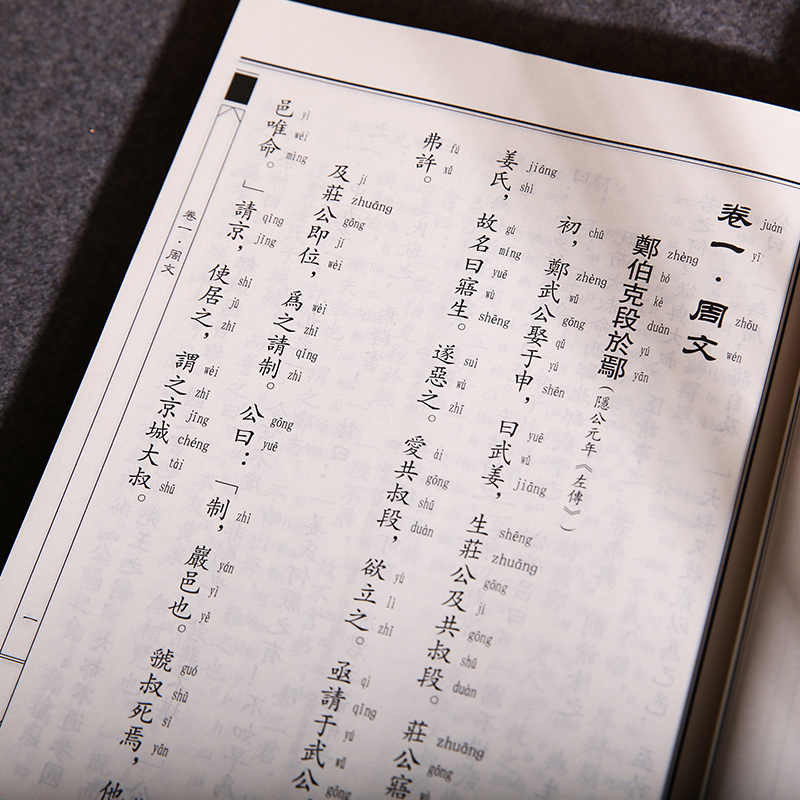 juàn yī zhōu wén
卷一·周文
zhèng bó kè duàn yú yān
鄭伯克段於鄢（隱公元年《左傳》）
chū zhèng wǔ gōng qǔ yú shēn yuē wǔ jiāng shēng zhuāng gōng jí gōng shū duàn zhuāng gōng
初，鄭武公娶于申，曰武姜，生莊公及共叔段。莊公寤
jiāng shì gù míng yuē wù shēng suì wù zhī ài gōng shū duàn yù lì zhī qì qǐng yú wǔ gōng
姜氏，故名曰寤生。遂惡之。愛共叔段，欲立之。亟請于武公
fú xǔ
弗許。
jí zhuāng gōng jí wèi wèi zhī qǐng zhì gōng yuē zhì yán yì yě guó shū sǐ yān
及莊公即位，爲之請制。公曰：「制，巖邑也。虢叔死焉，他
yì wéi mìng qǐng jīng shǐ jū zhī wèi zhī jīng chéng tài shū
邑唯命。」請京，使居之，謂之京城大叔。
卷一·周文
一